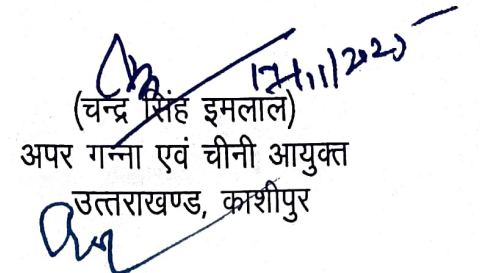 17/11/2025
(चन्द्र सिंह इमलाल)
अपर गन्ना एवं चीनी आयुक्त
उत्तराखण्ड, काशीपुर